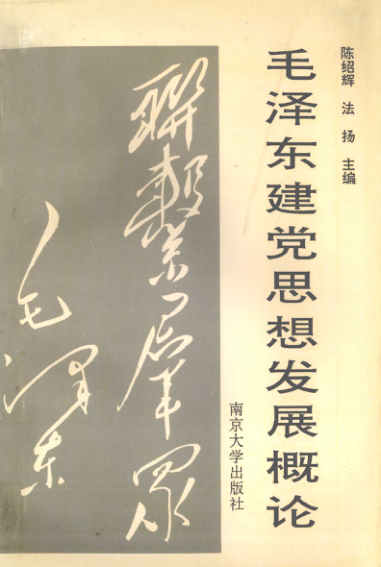 陈绍辉 法 扬 主编
毛泽东建党思想发展概论
南京大学出版社
聯繫羣眾
毛泽东